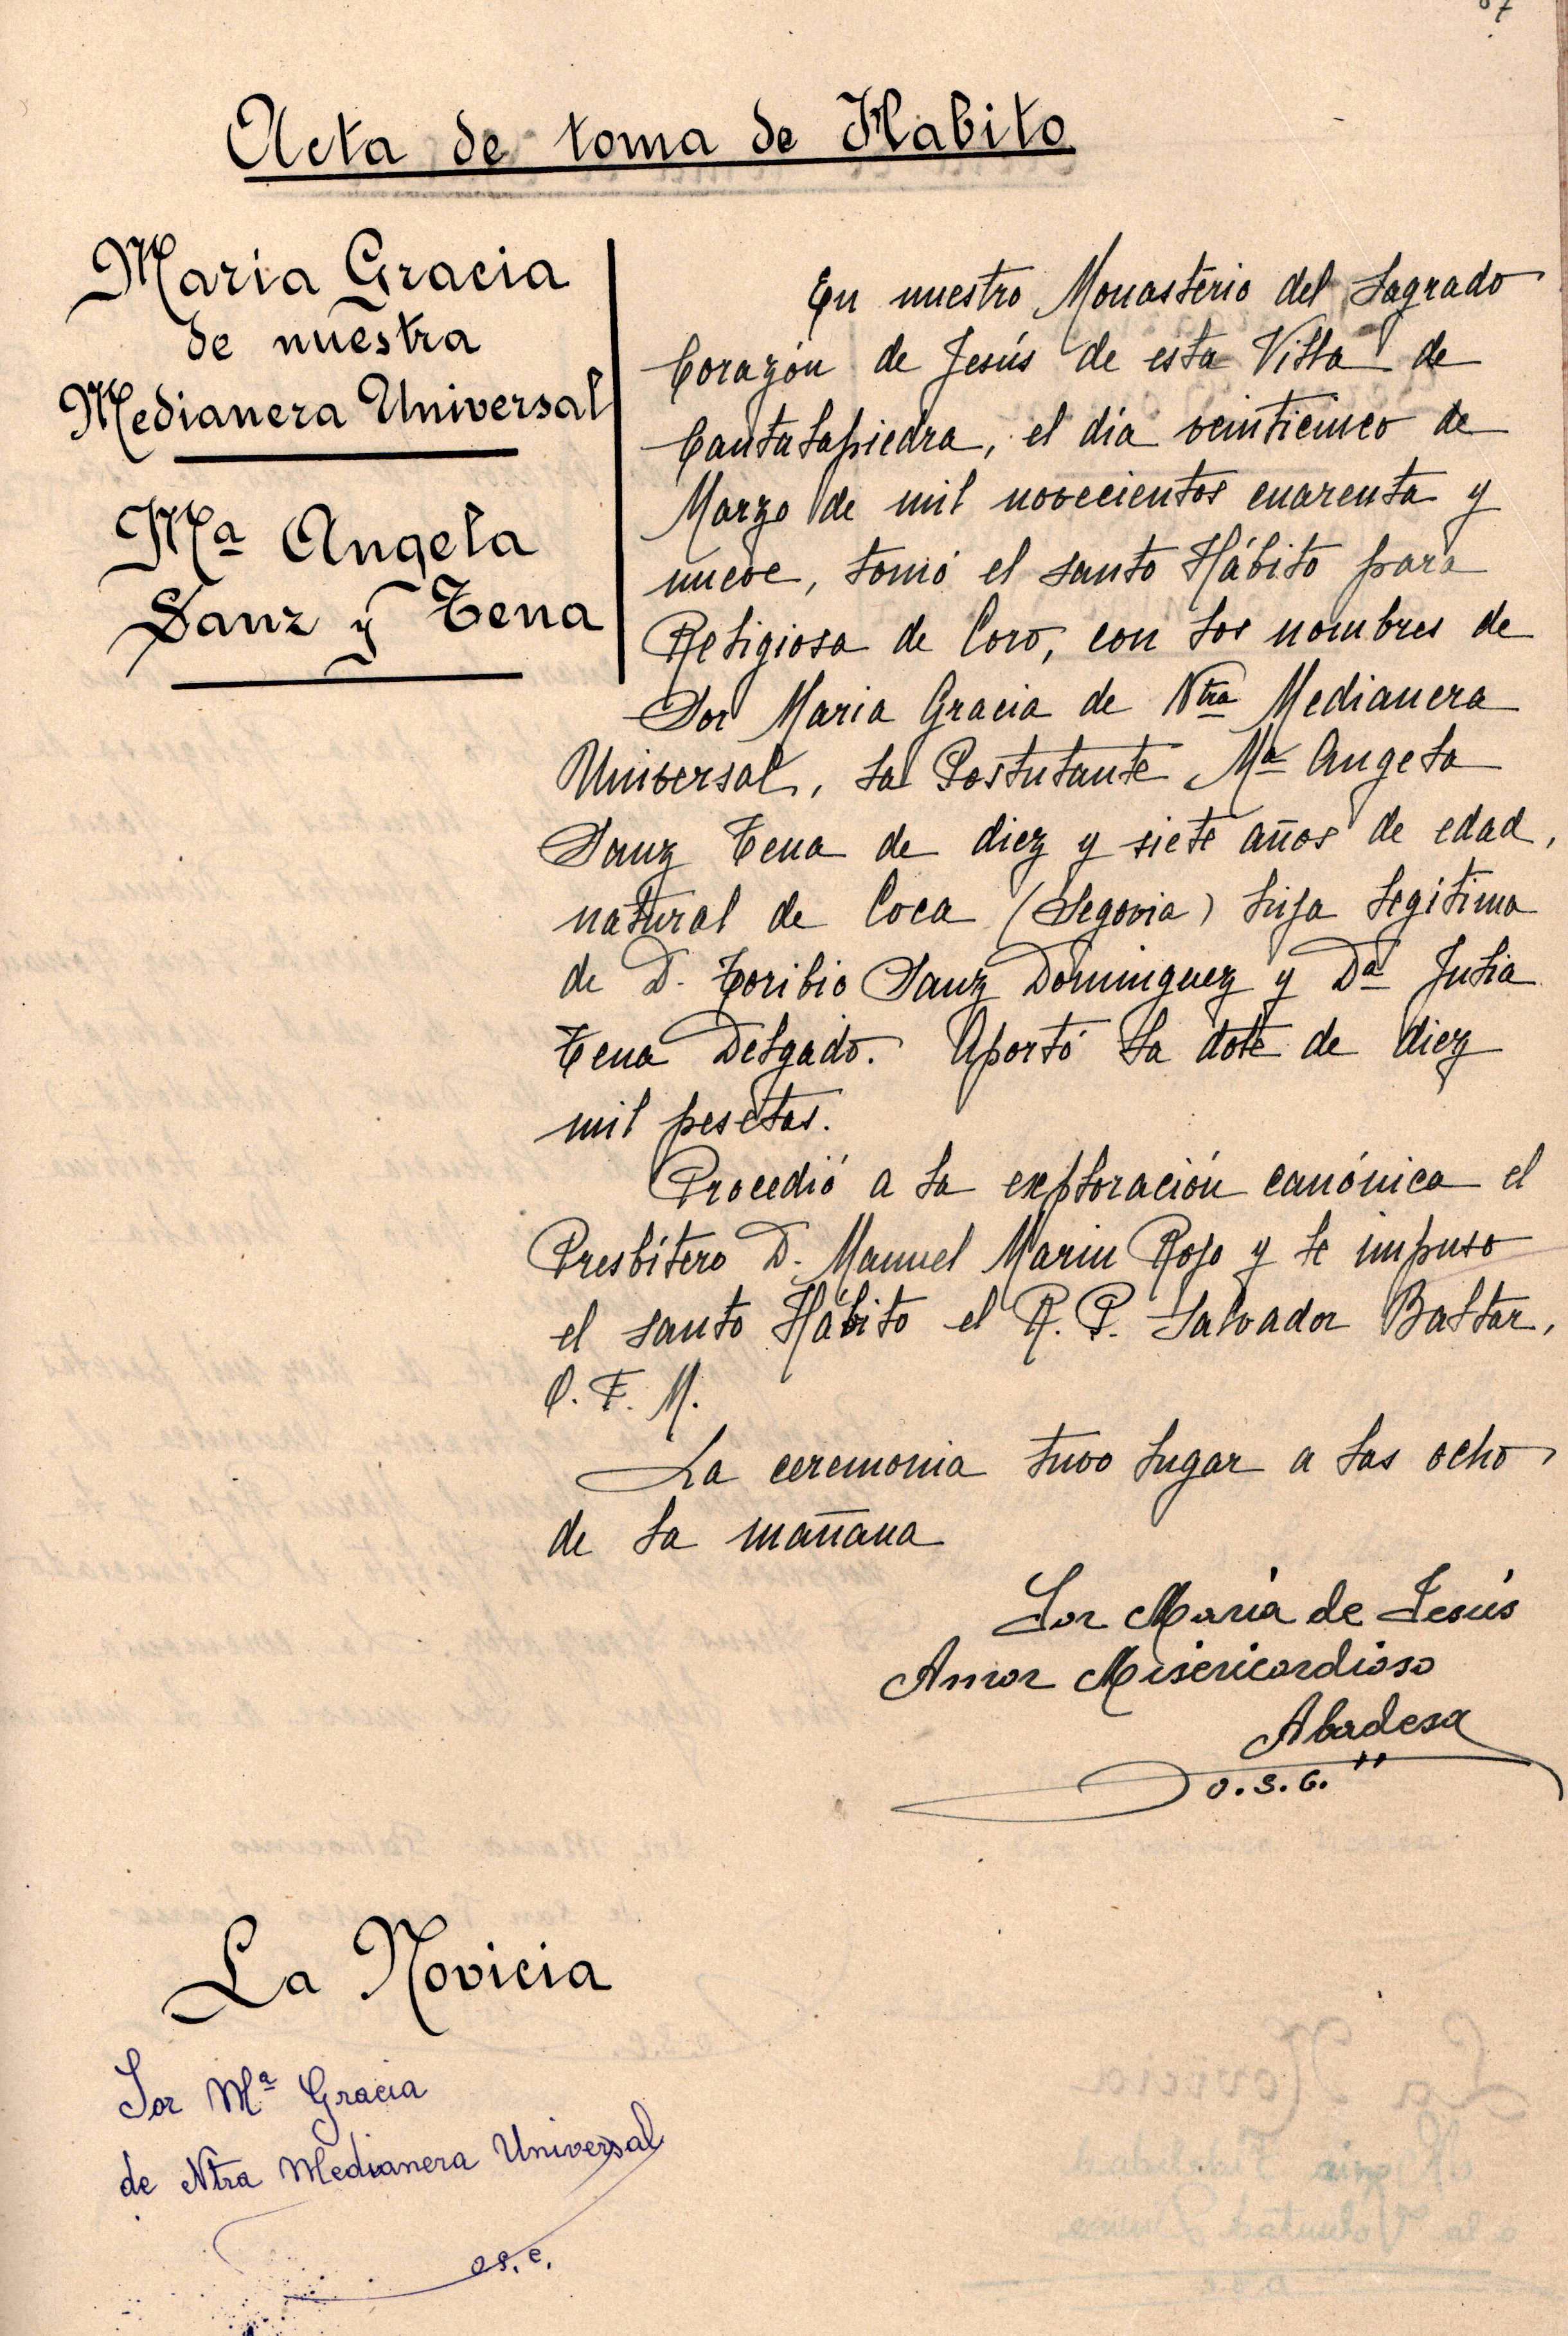 Acta de toma de Habito
María Gracia
de nuestra
Medianera Universal
Mª Angela
Sanz y Tena
En nuestro Monasterio del Sagrado
Corazón de Jesús de esta Villa de
Cantalapiedra, el día veinticinco de
Marzo de mil novecientos cuarenta y
nueve, tomó el santo Hábito para
Religiosa de Coro, con los nombres de
Sor Maria Gracia de Ntra Medianera
Universal, la Postulante Mª Angela
Sanz Tena de diez y siete años de edad,
natural de Coca (Segovia) hija legítima
de D. Toribio Sanz Dominguez y Dª Julia
Tena Delgado. Aportó la dote de diez
mil pesetas.
Procedió a la exploración canónica el
Presbítero D. Manuel Marin Rojo y le impuso
el santo Hábito el R. P. Salvador Baltar,
O. F. M.
La ceremonia tuvo lugar a las ocho
de la mañana
Sor María de Jesús
Amor Misericordioso
Abadesa
O.S.C.
La Novicia
Sor Mª Gracia
de Ntra Medianera Universal
o.s.c.